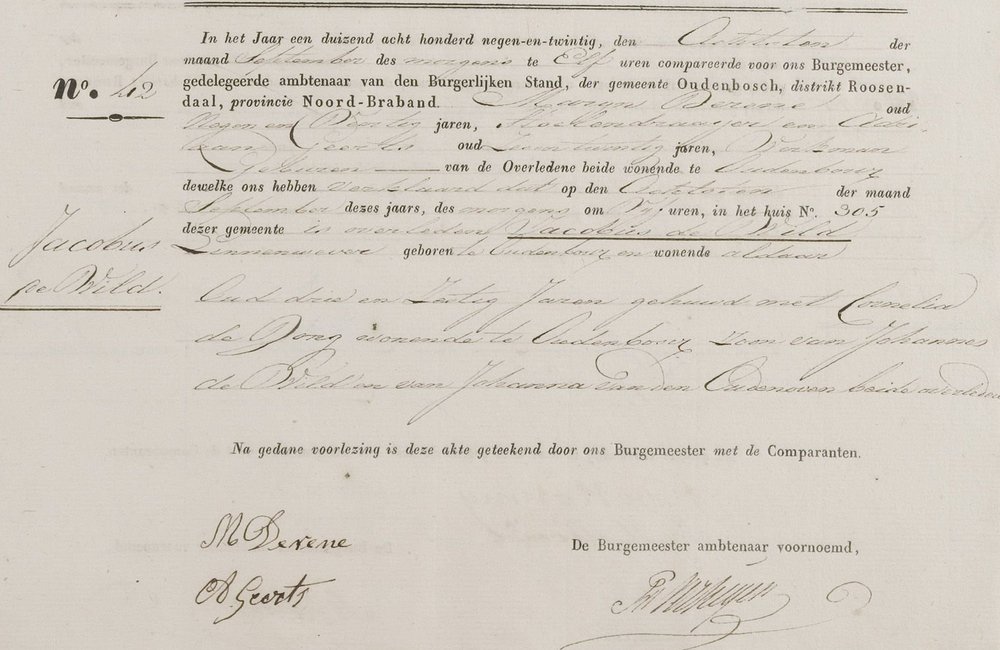 In het Jaar een duizend acht honderd negen-en-twintig, den Achtsten der
maand September des morgens te Elf uren compareerde voor ons Burgemeester,
N°. 42
gedelegeerde ambtenaar van den Burgerlijken Stand, der gemeente Oudenbosch, distrikt Roosen-
daal, provincie Noord-Braband. Marijn Derene oud
Negen en Veertig jaren, en Adri-
aan Geerts oud jaren, Werkman
Geburen van de Overledene beide wonende te Oudenbosch
dewelke ons hebben verklaard dat op den Achtsten der maand
September dezes jaars, des morgens om Vijf uren, in het huis N°. 305
dezer gemeente is overleden Jacobus de Wild
Linnenwever geboren te Oudenbosch en wonende aldaar
Jacobus
de Wild.
Oud drie en Zestig Jaren gehuwd met Cornelia
de Jong wonende te Oudenbosch Zoon van Johannes
de Wild en van Johanna van den Oudenoven beide overleden
Na gedane voorlezing is deze akte geteekend door ons Burgemeester met de Comparanten.
M Derene
De Burgemeester ambtenaar voornoemd,
A Geerts